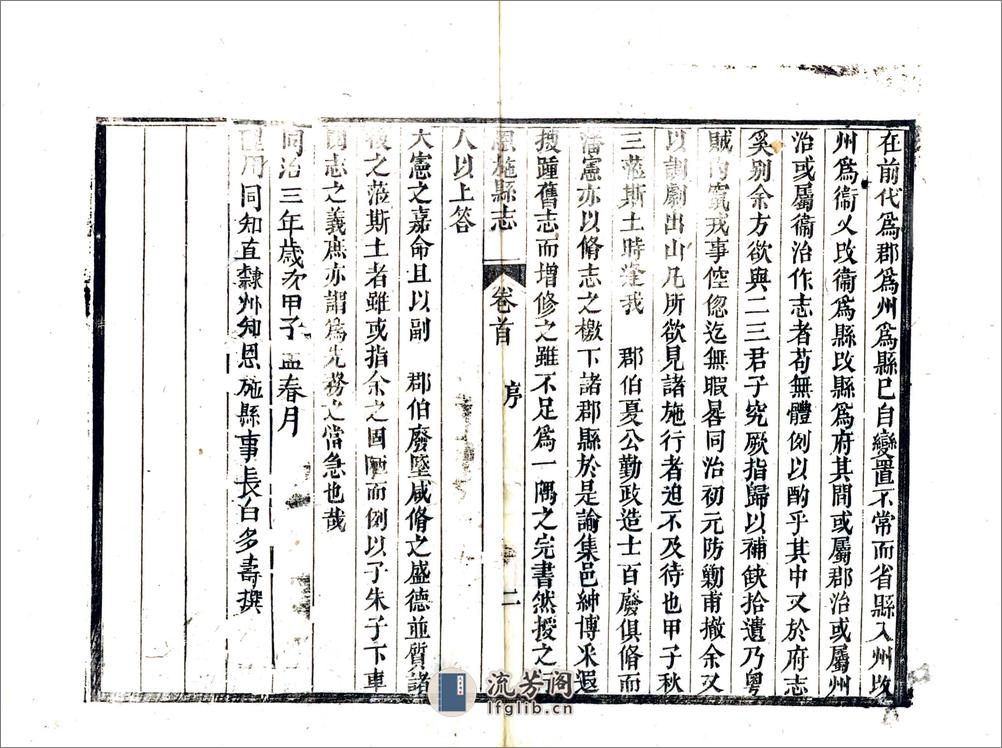 在前代爲郡爲州爲縣已自變置不常而省縣入州改
州爲衞乂改衞爲縣改縣爲府其間或屬郡治或屬州
治或屬衞治作志者苟無體例以酌乎其中又於府志
奚别余方欲與二三君子究厥指歸以補缺拾遺乃粤
賊内竄戎事倥偬迄無暇晷同治初元防勦甫撤余又
以調劇出山凡所欲見諸施行者迫不及待也甲子秋
三蒞斯土時逢我　郡伯夏公勤政造士百廢俱脩而
藩憲亦以脩志之檄下諸郡縣於是諭集邑紳博采遐
搜踵舊志而增修之雖不足爲一隅之完書然援之
恩施縣志　卷首　序　二
人以上答
大憲之嘉命且以副　郡伯廢墜咸脩之盛德並質諸
後之蒞斯土者雖或指余之固陋而例以子朱子下車
問志之義庶亦謂爲先務之當急也哉
同治三年歲次甲子孟春月
用同知直隸州知恩施縣事長白多壽撰
流芳阁
lfglib.cn